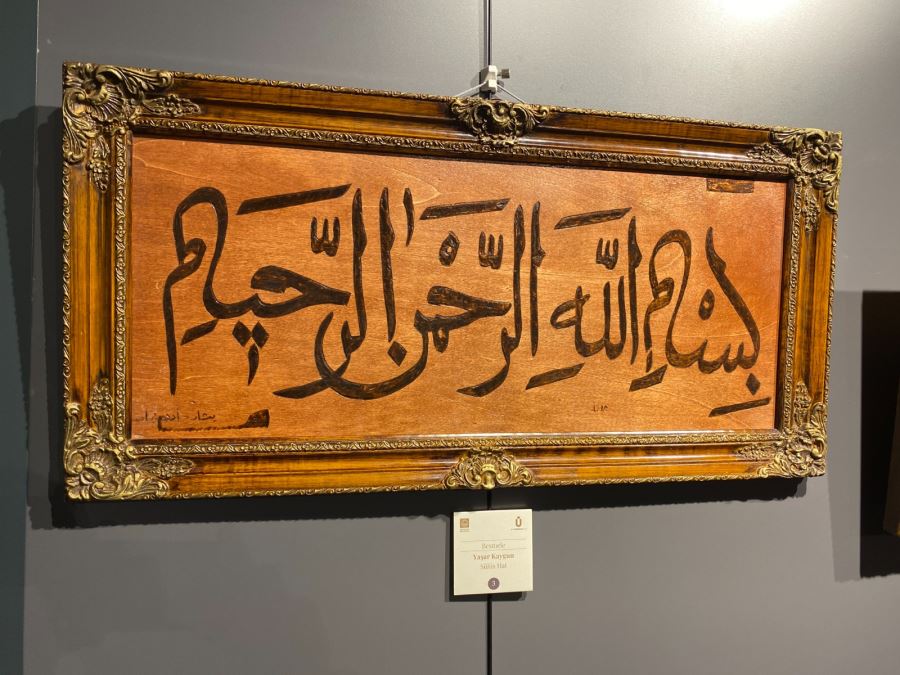 بسم الله الرحمن الرحيم
Besmele
Yaşar Kaygun
Sülüs Hat
3